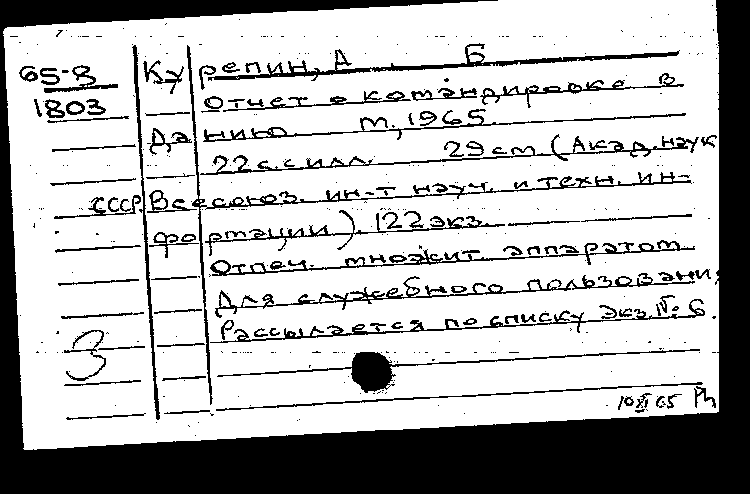 65-8 Курепин, А. Б
1803 Отчет о командировке в
Данию. М., 1965.
22 с. с илл. 29 см (Акад. наук
СССР. Всесоюз. ин-т науч. и техн. ин-
формации). 122 экз.
Отпеч. множит. аппаратом
Для служебного пользования
Рассылается по списку Экз. № 6.
3
10 XI 65